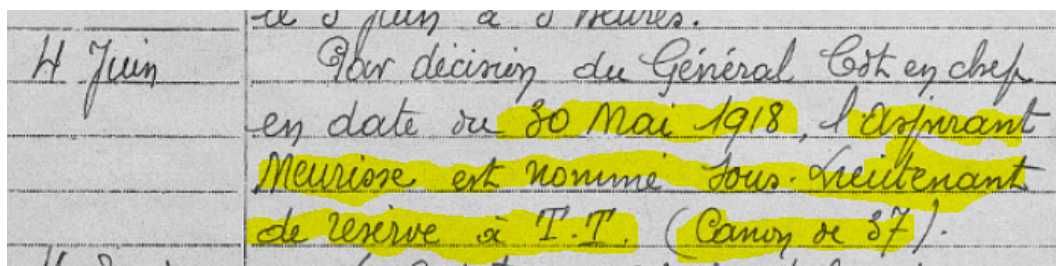 le 5 juin à 5 heures.
4 Juin
Par décision du Général Cdt en chef
en date du 30 Mai 1918, l'aspirant
Meurisse est nommé Sous-Lieutenant
de réserve à T.T. (Canon de 37).